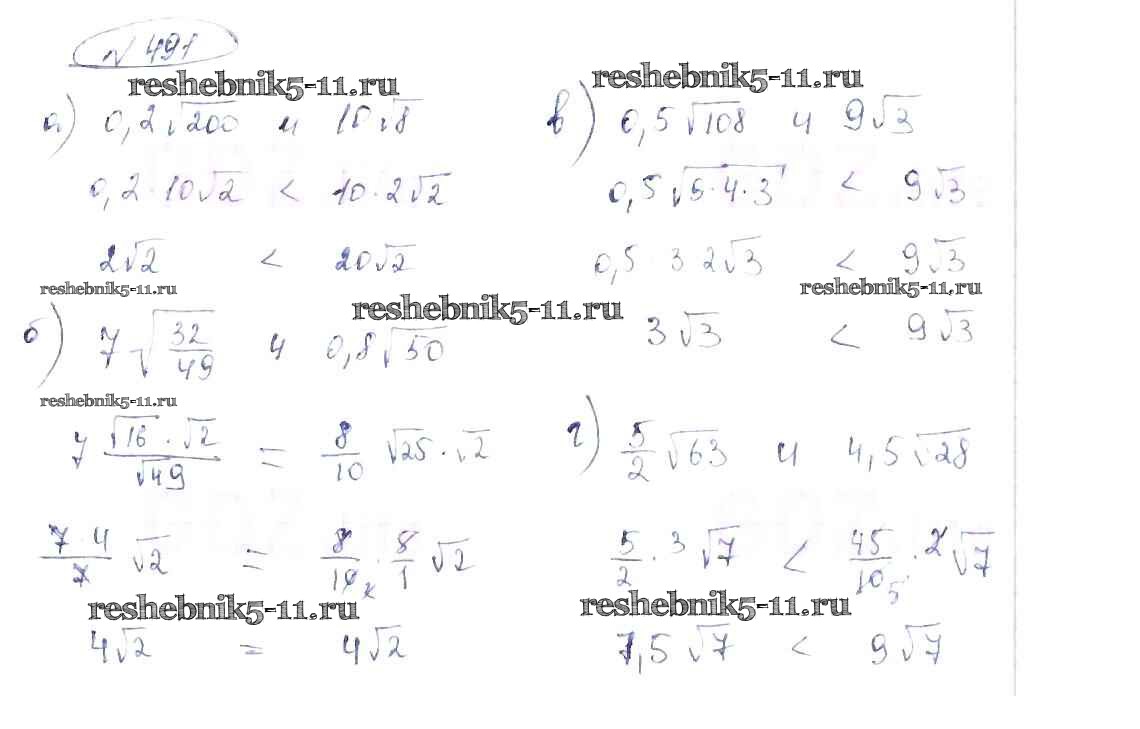 № 491
reshebnik5-11.ru
а) 0,2√200 и 10√8
0,2·10√2 < 10·2√2
2√2 < 20√2
reshebnik5-11.ru
б) 7√(32/49) и 0,8√50
reshebnik5-11.ru
7 (√16·√2)/√49 = 8/10 √25·√2
(7·4)/7 √2 = 8/10₂ · 8/1 √2
reshebnik5-11.ru
4√2 = 4√2
reshebnik5-11.ru
в) 0,5√108 и 9√3
0,5√(9·4·3) < 9√3
0,5·3·2√3 < 9√3
reshebnik5-11.ru
reshebnik5-11.ru
3√3 < 9√3
г) 5/2 √63 и 4,5√28
5/2 · 3√7 < 45/10₅ · 2√7
reshebnik5-11.ru
7,5√7 < 9√7